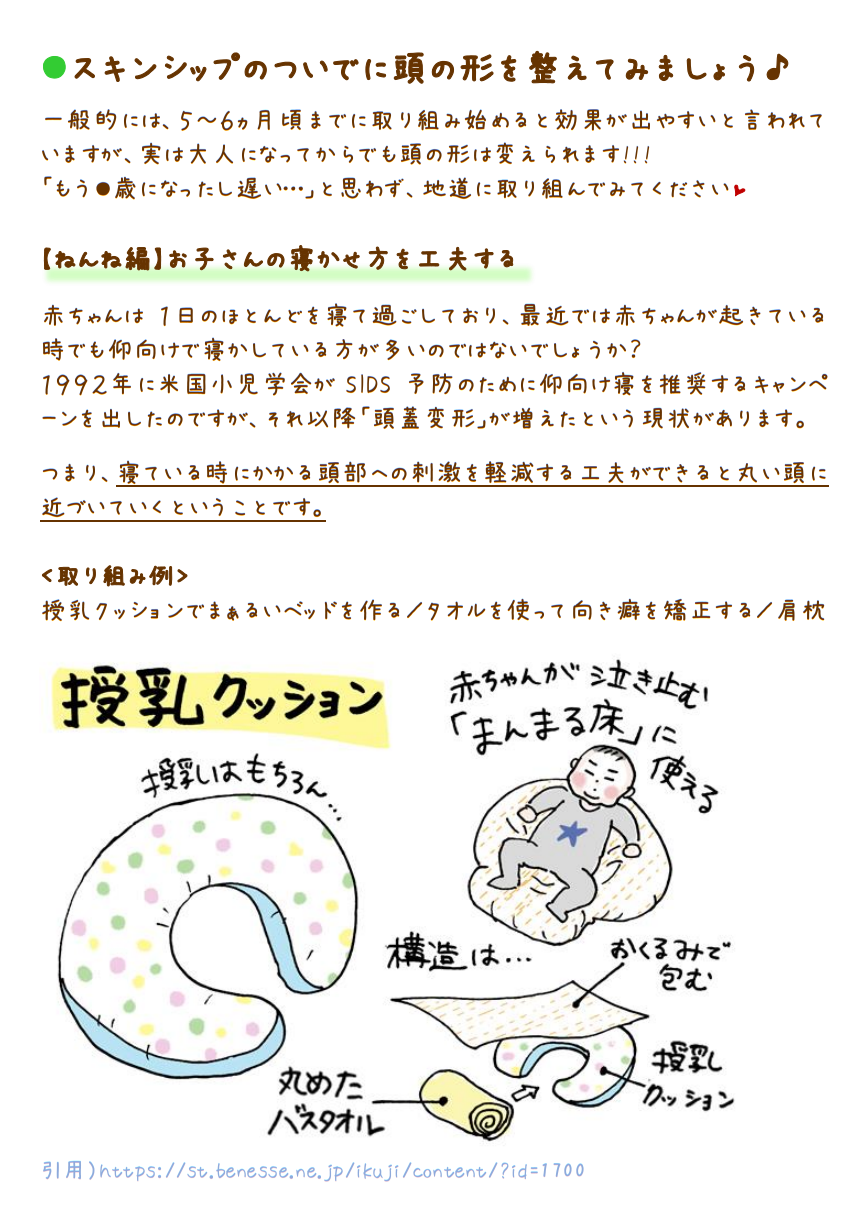 ●スキンシップのついでに頭の形を整えてみましょう♪
一般的には、5～6ヵ月頃までに取り組み始めると効果が出やすいと言われて
いますが、実は大人になってからでも頭の形は変えられます!!!
「もう●歳になったし遅い…」と思わず、地道に取り組んでみてください♥
【ねんね編】お子さんの寝かせ方を工夫する
赤ちゃんは 1日のほとんどを寝て過ごしており、最近では赤ちゃんが起きている
時でも仰向けで寝かしている方が多いのではないでしょうか?
1992年に米国小児学会が SIDS 予防のために仰向け寝を推奨するキャンペ
ーンを出したのですが、それ以降「頭蓋変形」が増えたという現状があります。
つまり、寝ている時にかかる頭部への刺激を軽減する工夫ができると丸い頭に
近づいていくということです。
<取り組み例>
授乳クッションでまぁるいベッドを作る/タオルを使って向き癖を矯正する/肩枕
授乳クッション
授乳はもちろん…
赤ちゃんが泣き止む
「まんまる床」に
使える
構造は…
おくるみで
包む
授乳
クッション
丸めた
バスタオル
引用)https://st.benesse.ne.jp/ikuji/content/?id=1700